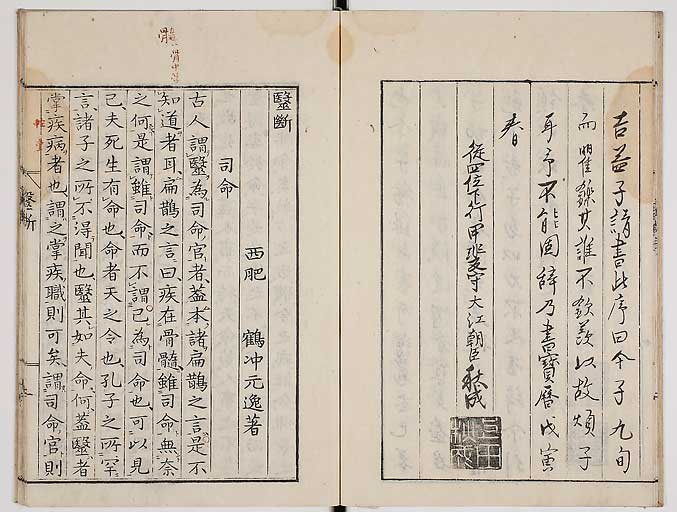 吉益子請書此序曰今子九旬
而矍鑠其誰不欽羨以故煩子
耳予不能固辞乃書寶曆戊寅
春
從四位下行甲斐守大江朝臣
醫斷
西肥 鶴冲元逸著
司命
古人謂醫為司命官者蓋本諸扁鵲之言是不
知道者耳扁鵲之言曰疾在骨髓雖司命無奈
之何是謂雖司命而不謂己為司命也可以見
已夫死生有命也命者天之令也孔子之所罕
言諸子之所不得聞也醫其如夫命何蓋醫者
掌疾病者也謂之掌疾職則可矣謂司命官則
醫斷